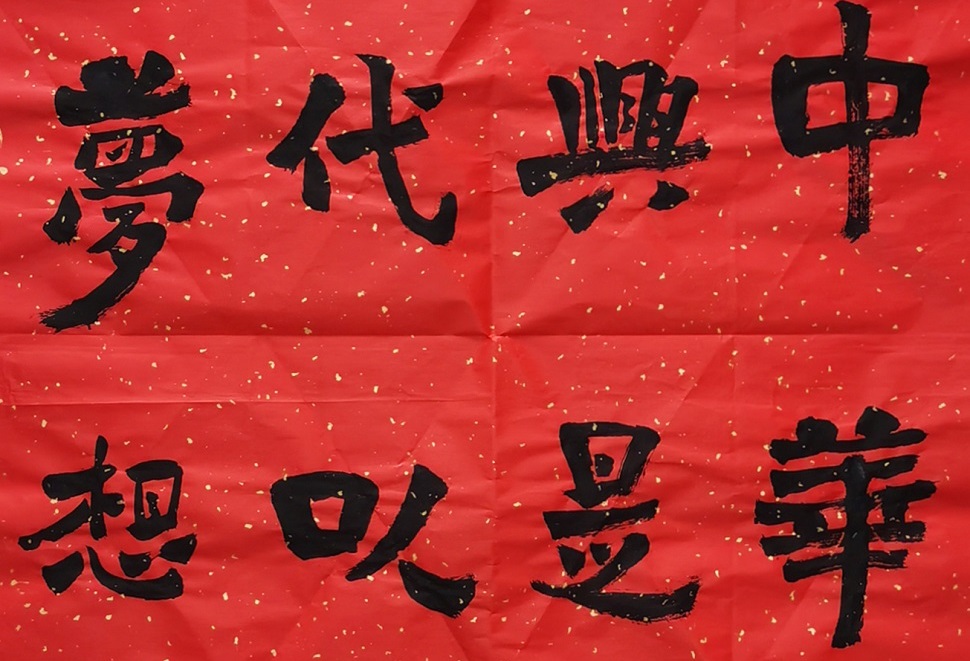 中華
興是
代以
夢想